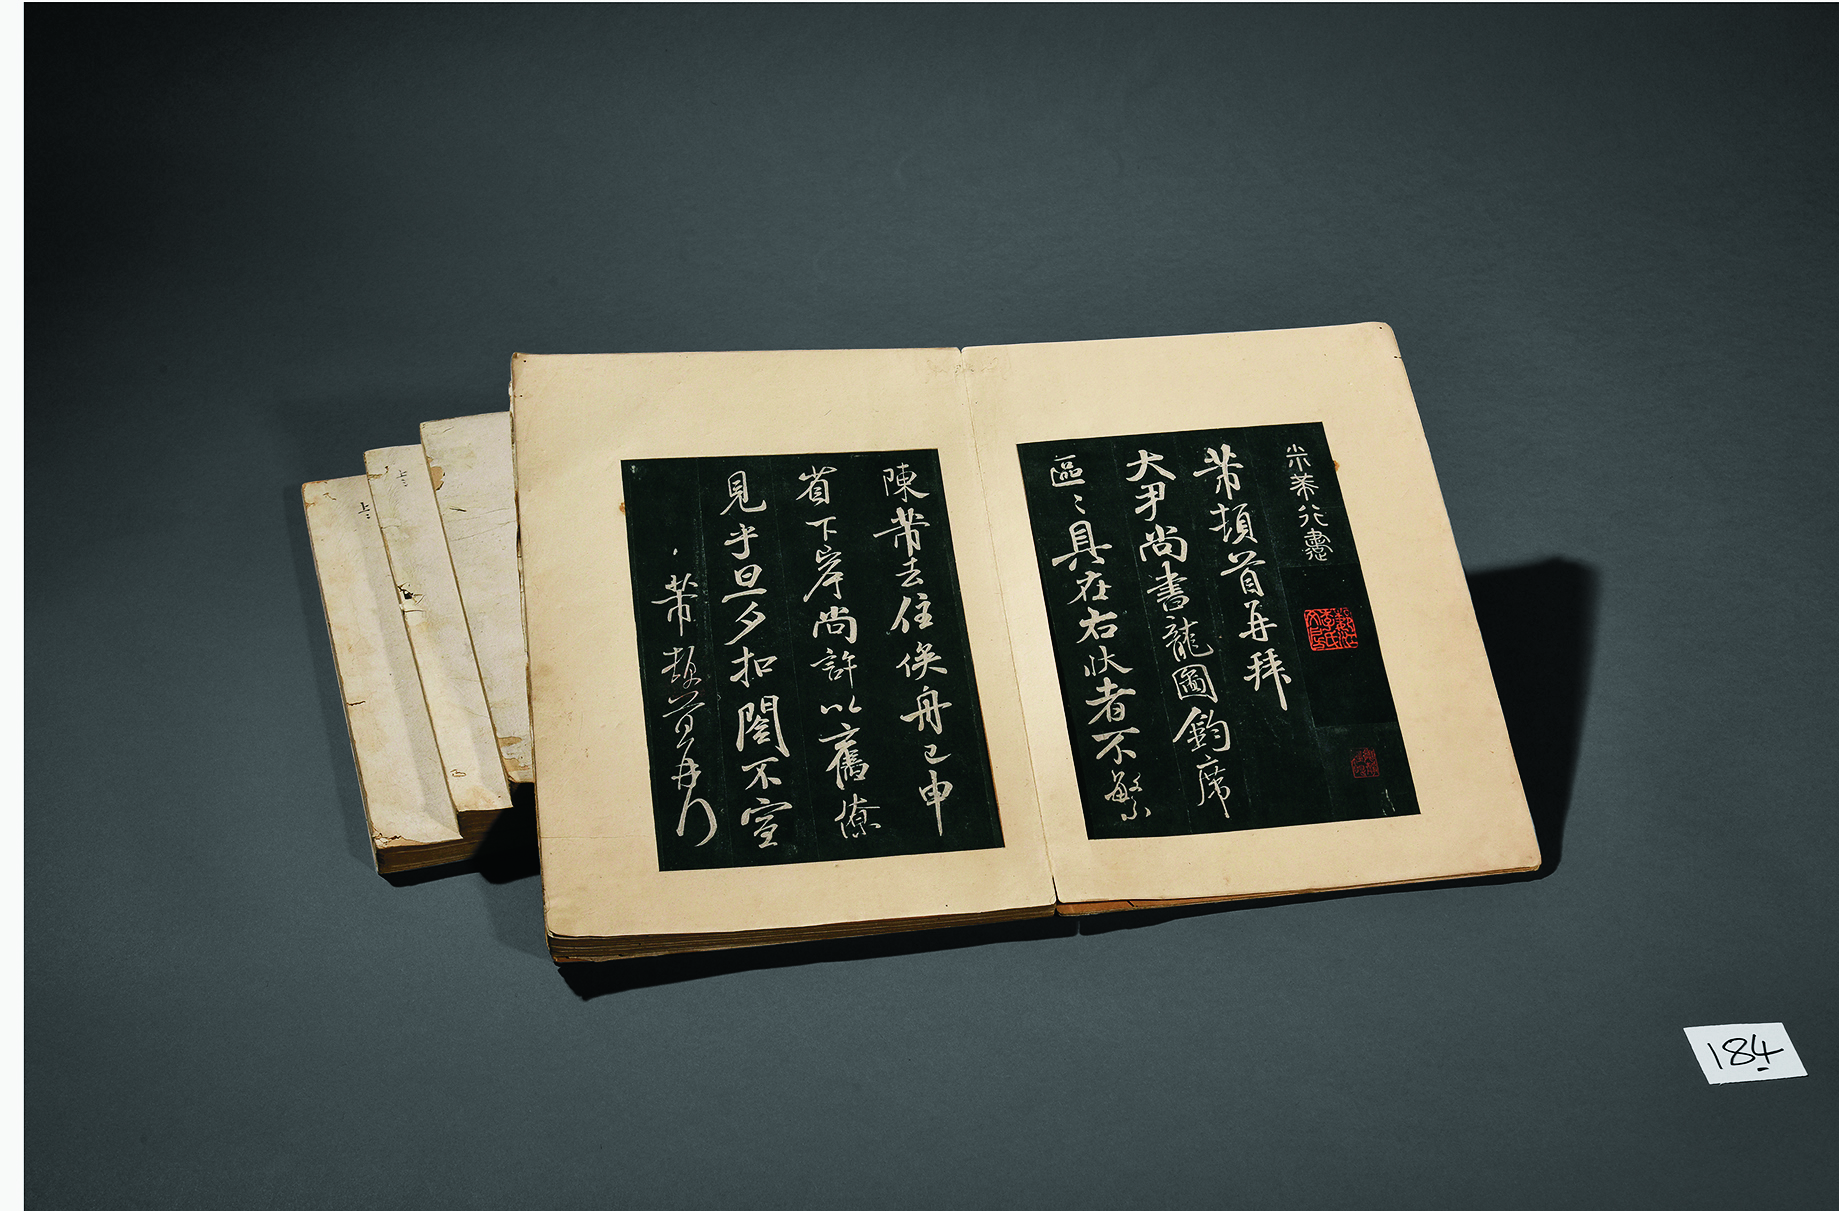 米芾行書
芾頓首再拜
大尹尚書龍圖鈞席
區〻具在右伏者不繁
陳芾去住俟舟已申
省下岸尚許以舊僚
見乎旦夕扣閽不宣
芾頓首再拜
184